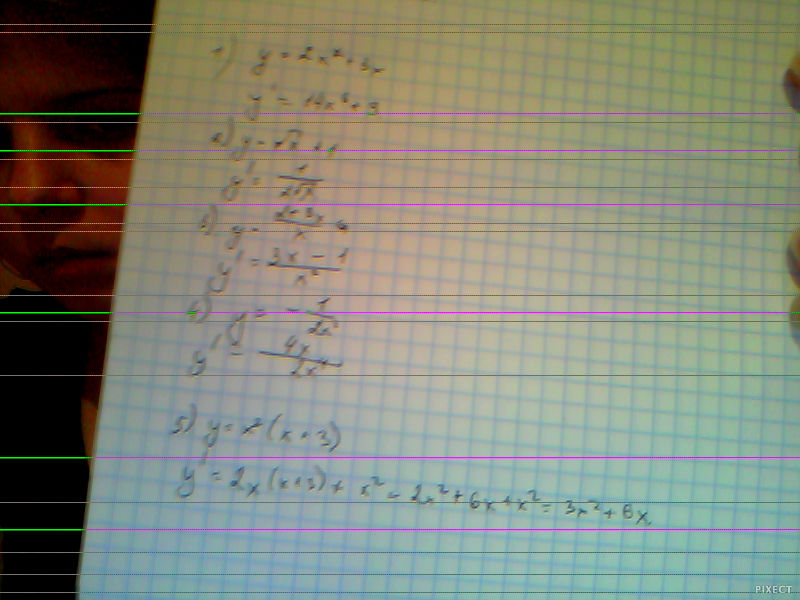 1) y = 2x⁷ + 3x
y' = 14x⁶ + 3
2) y = √x + 1
y' = 1/(2√x)
3) y = (2-3x)/x
y' = (3x - 1)/x²
4) y = - 1/(2x²)
y' = 4x/(2x⁴)
5) y = x²(x+3)
y' = 2x(x+3) + x² = 2x² + 6x + x² = 3x² + 6x
PIXECT